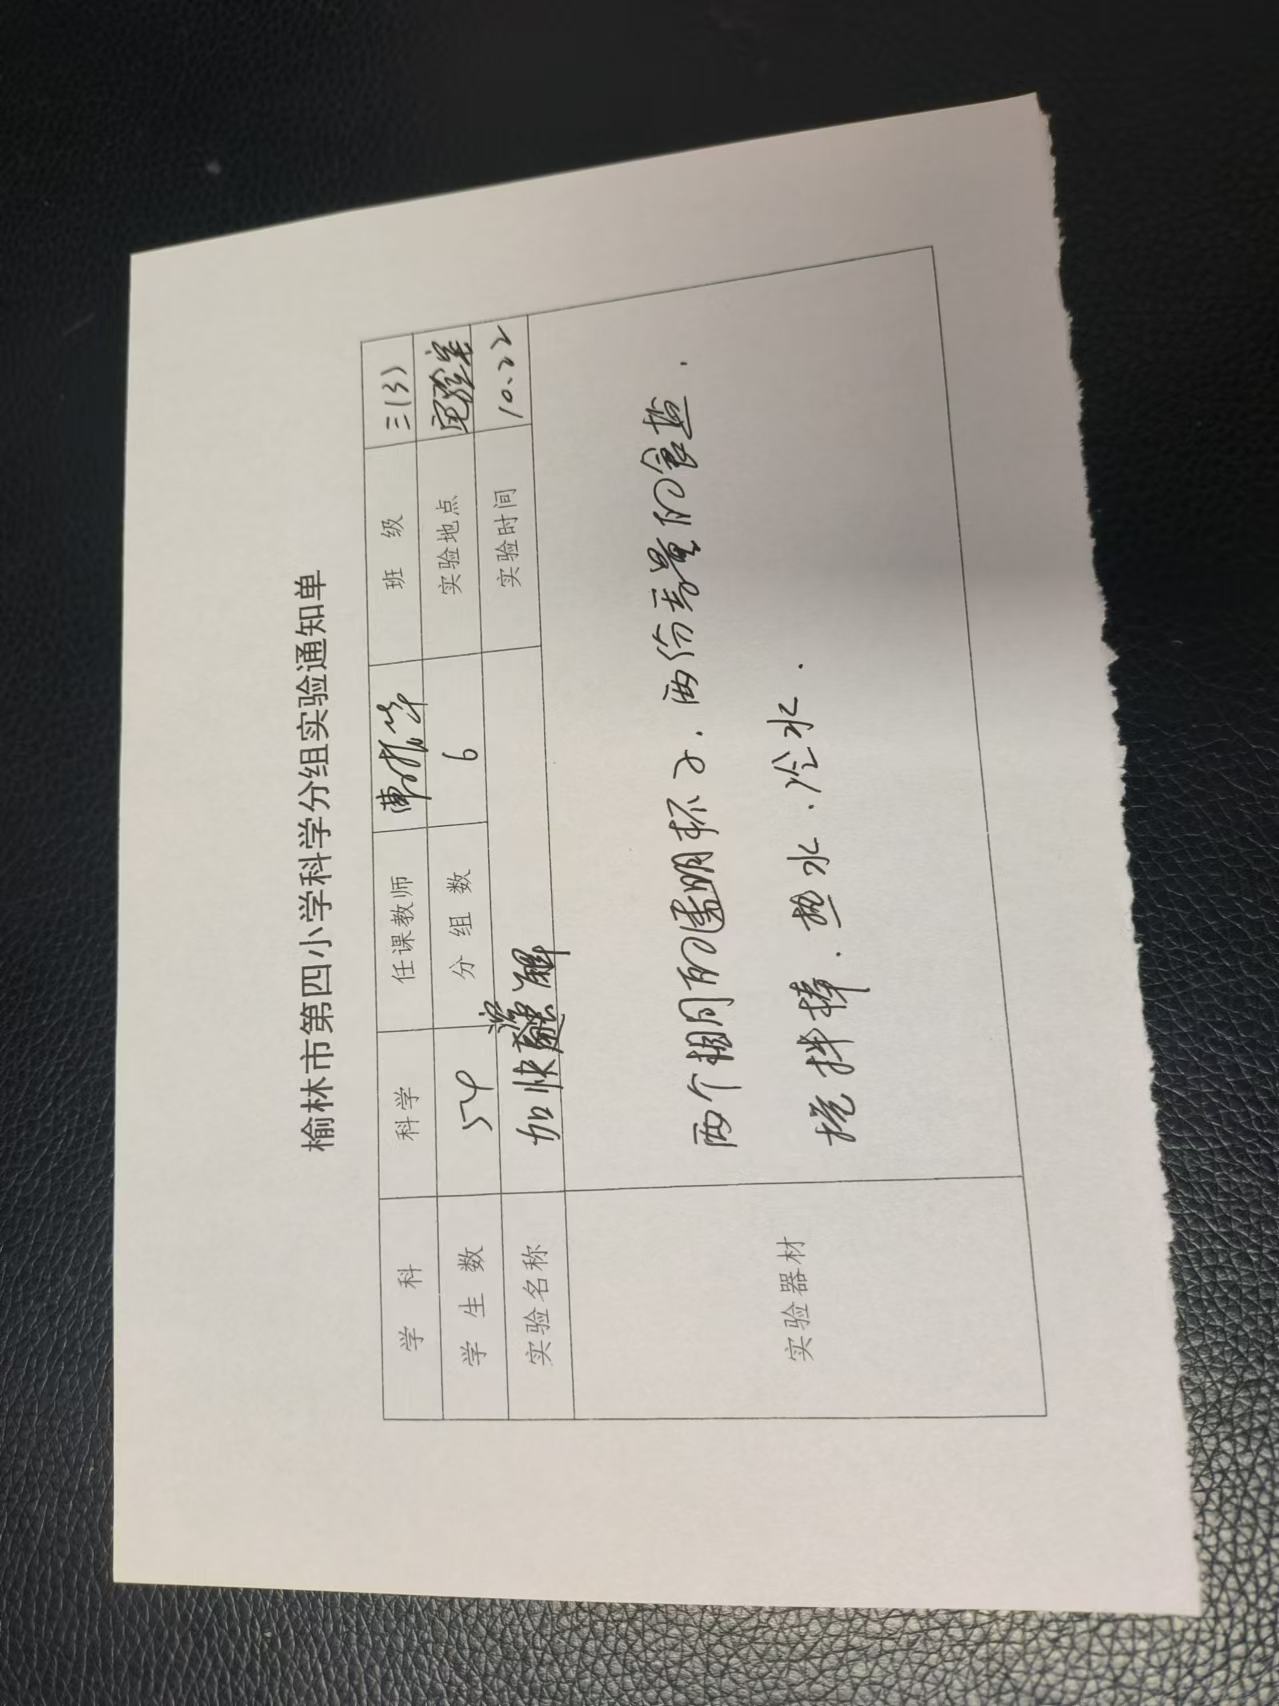 榆林市第四小学科学分组实验通知单
学 科 科学 任课教师 班 级 三(3)
学 生 数 54 分 组 数 6 实验地点 实验室
实验名称 加快溶解 实验时间 10.22
实验器材
两个相同的透明杯子.两份等量的食盐.
搅拌棒.热水.冷水.